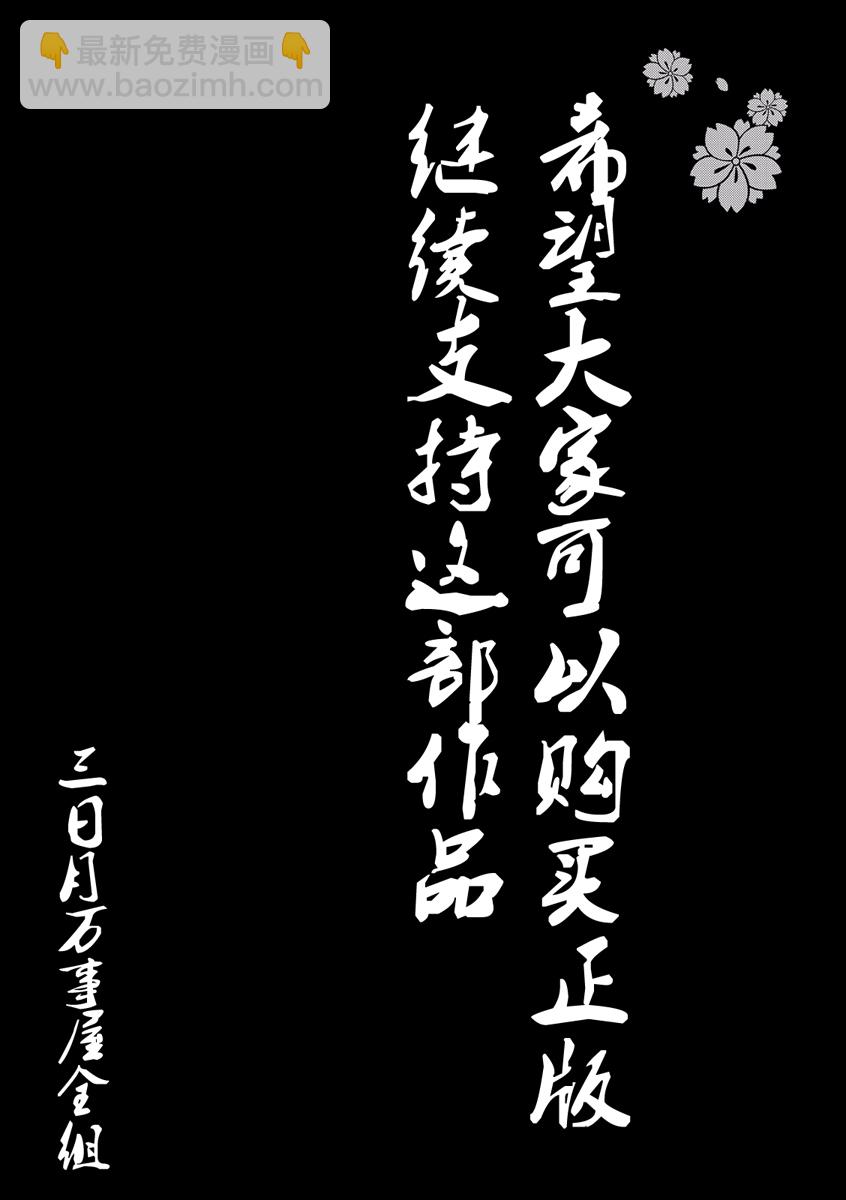 👇最新免费漫画👇
www.baozimh.com
希望大家可以购买正版
继续支持这部作品
三日月万事屋全组